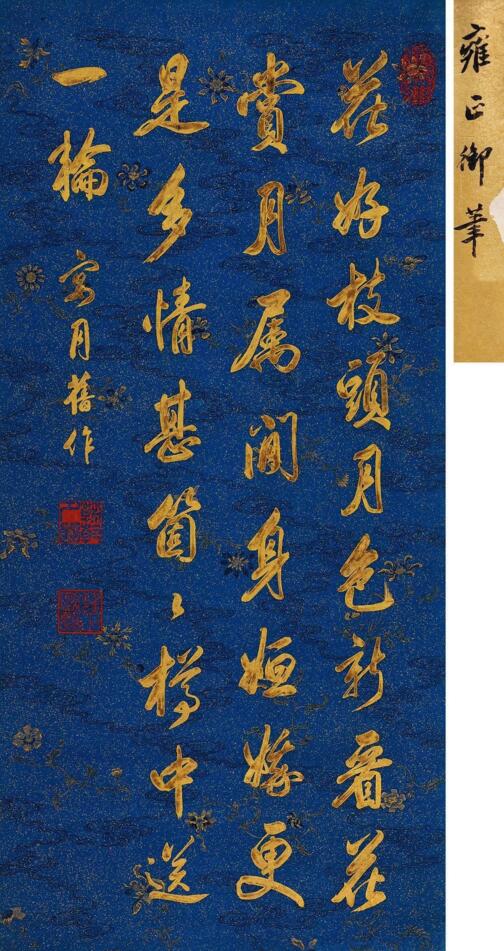 花好枝頭月色新看花
賞月属閒身姮娥更
是多情甚箇〻樽中送
一輪
月舊作
雍正御筆